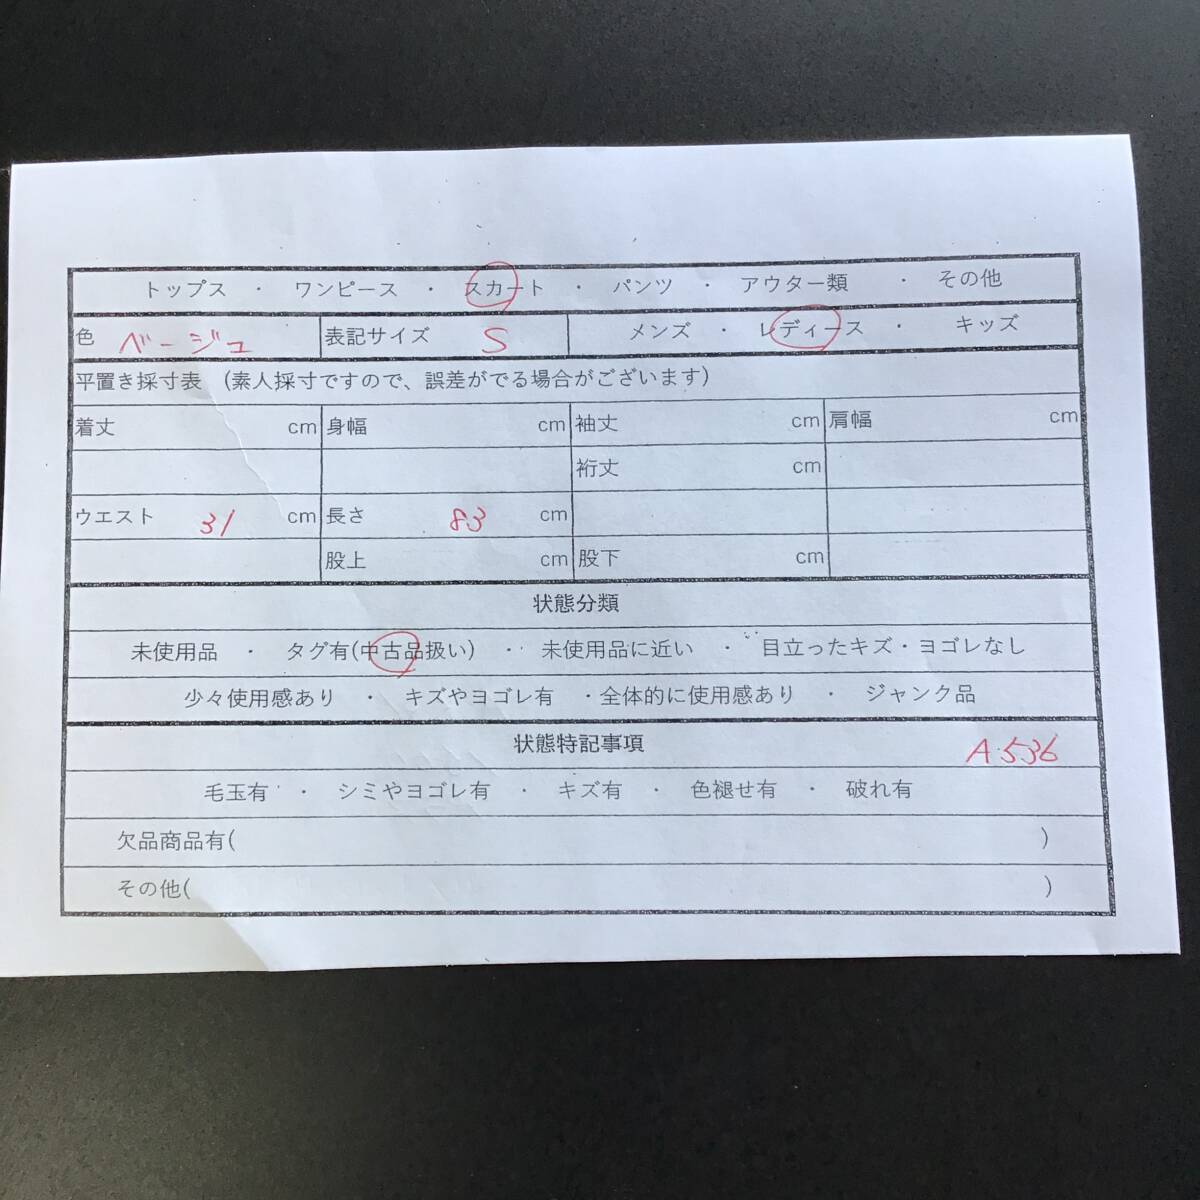 トップス ・ ワンピース ・ スカート ・ パンツ ・ アウター類 ・ その他
色 ベージュ 表記サイズ S メンズ ・ レディース ・ キッズ
平置き採寸表 (素人採寸ですので、誤差がでる場合がございます)
着丈 cm 身幅 cm 袖丈 cm 肩幅 cm
裄丈 cm
ウエスト 31 cm 長さ 83 cm
股上 cm 股下 cm
状態分類
未使用品 ・ タグ有(中古品扱い) ・ 未使用品に近い ・ 目立ったキズ・ヨゴレなし
少々使用感あり ・ キズやヨゴレ有 ・全体的に使用感あり ・ ジャンク品
状態特記事項 A.536
毛玉有 ・ シミやヨゴレ有 ・ キズ有 ・ 色褪せ有 ・ 破れ有
欠品商品有( )
その他( )